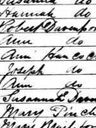 Susanna do
Hannah do
Robert Davenpor
Ann do
Ann Hancoc
Joseph do
Ann do
Susannah
Mary Pinch
Mary